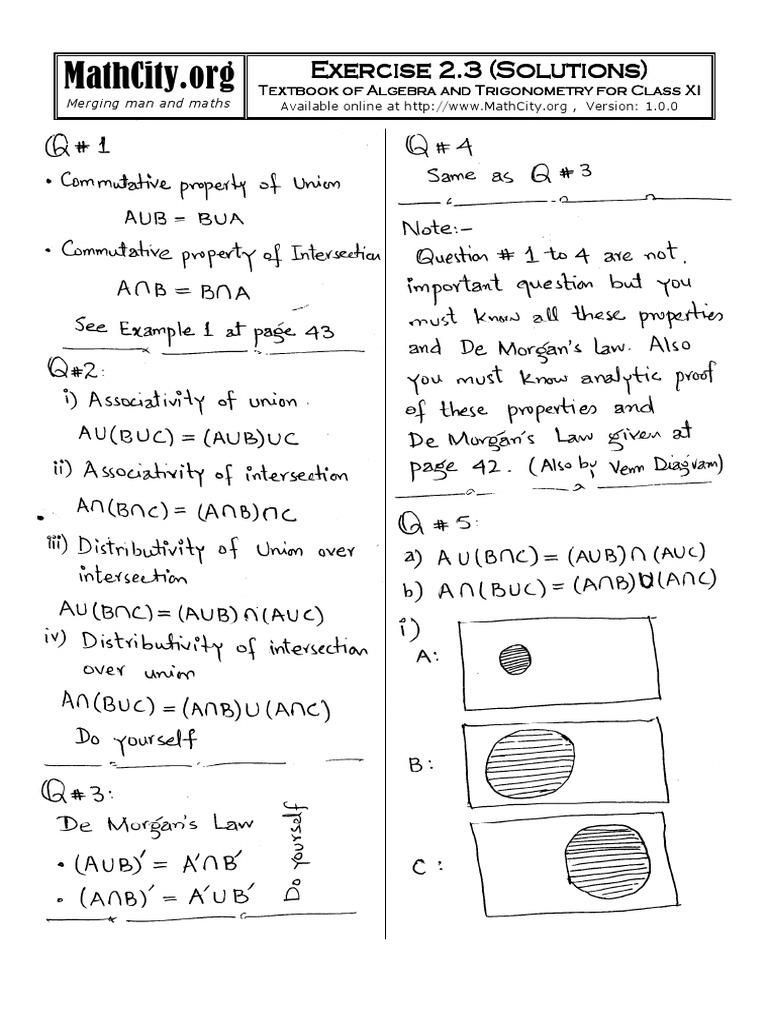 MathCity.org
Merging man and maths
Exercise 2.3 (Solutions)
Textbook of Algebra and Trigonometry for Class XI
Available online at http://www.MathCity.org , Version: 1.0.0
Q # 1
• Commutative property of Union
A∪B = B∪A
• Commutative property of Intersection
A∩B = B∩A
See Example 1 at page 43
Q#2:
i) Associativity of union.
A∪(B∪C) = (A∪B)∪C
ii) Associativity of intersection
A∩(B∩C) = (A∩B)∩C
iii) Distributivity of Union over
intersection
A∪(B∩C) = (A∪B)∩(A∪C)
iv) Distributivity of intersection
over union
A∩(B∪C) = (A∩B)∪(A∩C)
Do yourself
Q#3:
De Morgan's Law
• (A∪B)′ = A′∩B′
• (A∩B)′ = A′∪B′
Do yourself
Q # 4
Same as Q # 3
Note:-
Question # 1 to 4 are not
important question but you
must know all these properties
and De Morgan's Law. Also
you must know analytic proof
of these properties and
De Morgan's Law given at
page 42. (Also by Venn Diagram)
Q # 5:
a) A∪(B∩C) = (A∪B)∩(A∪C)
b) A∩(B∪C) = (A∩B)∪(A∩C)
i)
A:
B:
C: